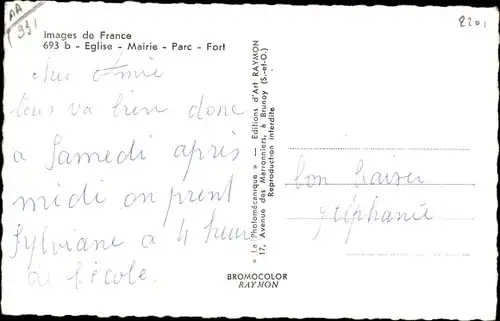 AA
931
2201
images de France
693 b - Eglise - Mairie - Parc - Fort
Amie
tous va bien donc
a Samedi après
midi on prent
Sylviane a 4 heure
de l'école.
« La Photomécanique » — Editions d'Art RAYMON
17, Avenue des Marronniers, à Brunoy (S.-et-O.)
Reproduction interdite
bon baiser
stéphanie
BROMOCOLOR
RAYMON